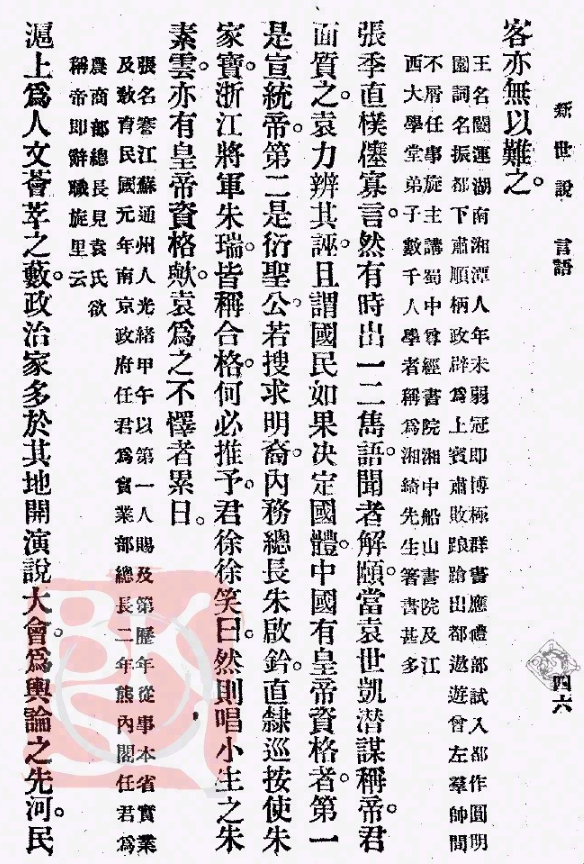 新世說　言語
四六
客亦無以難之。
王名闓運湖南湘潭人年未弱冠即博極群書應禮部試入都作圓明
園詞名振都下肅順柄政辟爲上賓肅敗踉蹌出都遨遊曾左羣帥間
不屑任事旋主講蜀中尊經書院湘中船山書院及江
西大學堂弟子數千人學者稱爲湘綺先生箸書甚多
張季直樸僿寡言。然有時出一二雋語。聞者解頤。當袁世凱潛謀稱帝。君
面質之。袁力辨其誣。且謂國民如果決定國體。中國有皇帝資格者。第一
是宣統帝。第二是衍聖公。若搜求明裔。內務總長朱啟鈐。直隸巡按使朱
家寶。浙江將軍朱瑞。皆稱合格。何必推予。君徐徐笑曰。然則唱小生之朱
素雲。亦有皇帝資格歟。袁爲之不懌者累日。
張名謇江蘇通州人光緒甲午以第一人賜及第歷年從事本省實業
及敎育民國元年南京政府任君爲實業部總長二年熊內閣任君爲
農商部總長見袁氏欲
稱帝即辭職旋里云
滬上爲人文薈萃之藪。政治家多於其地開演說大會。爲輿論之先河。民